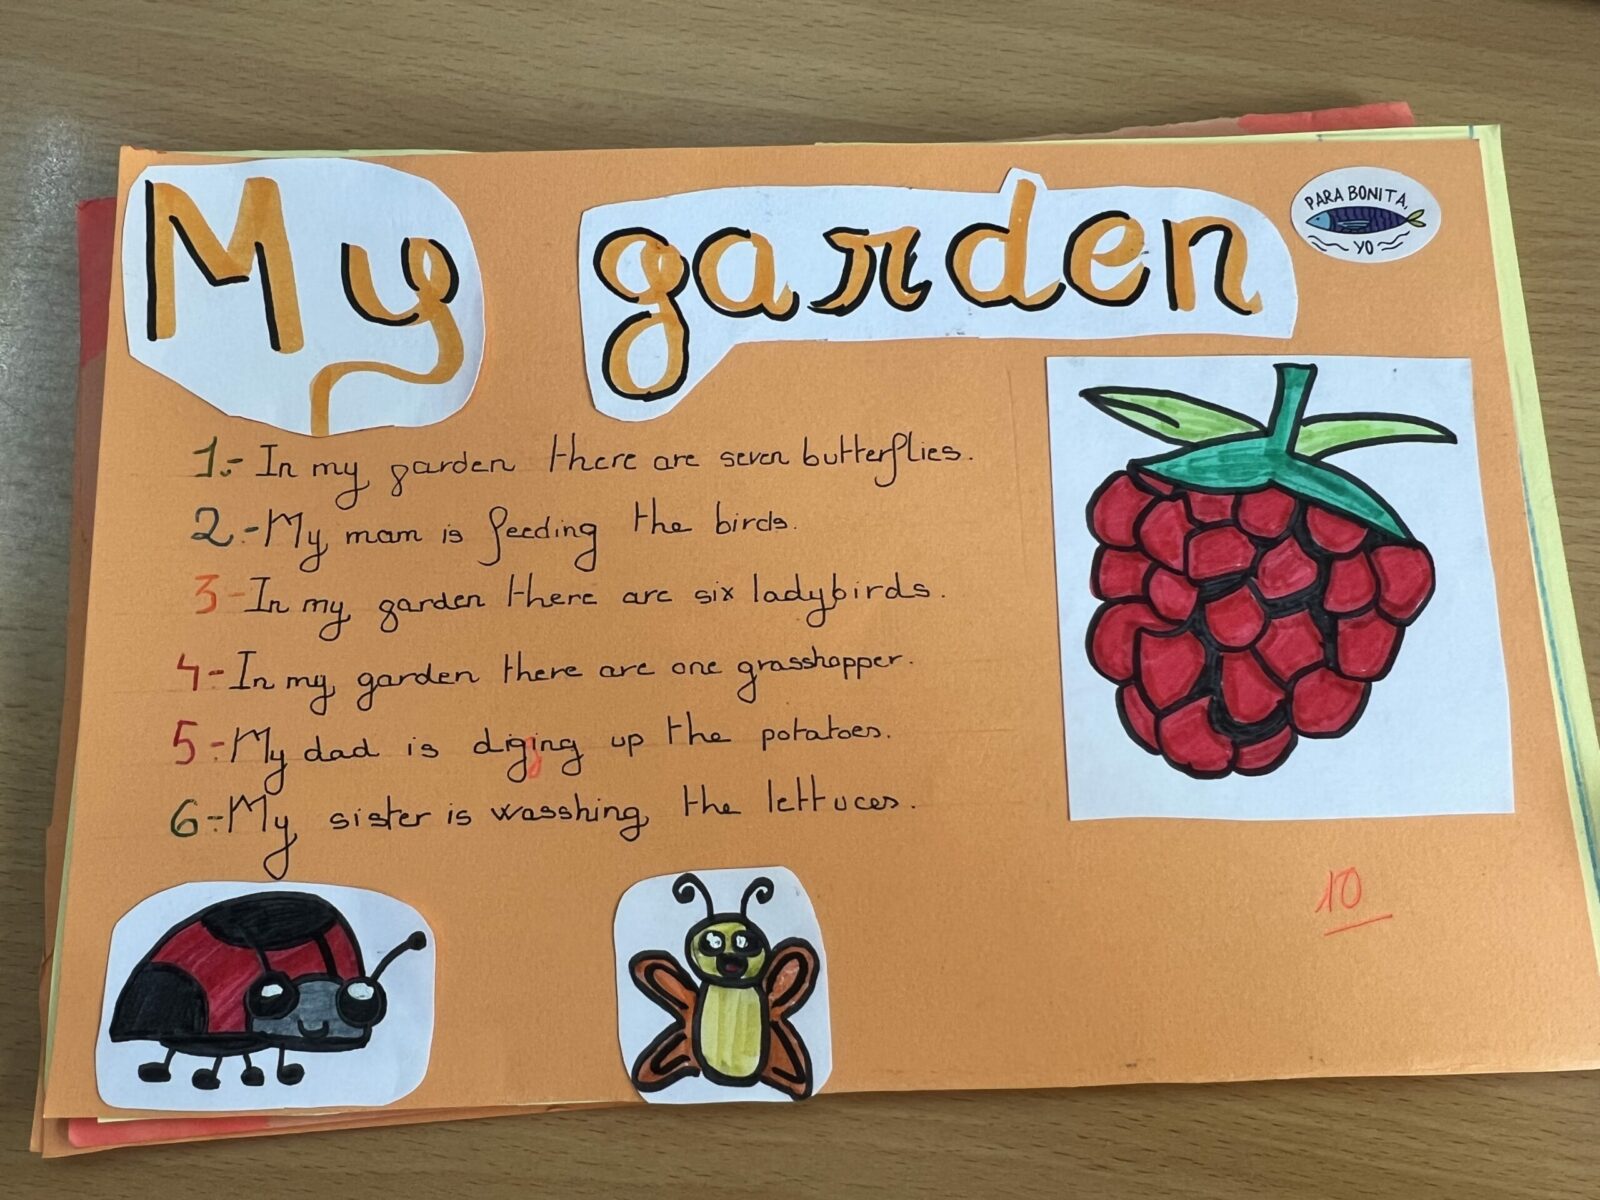 My garden
PARA BONITA,
YO
1.- In my garden there are seven butterflies.
2.- My mam is feeding the birds.
3- In my garden there are six ladybirds.
4- In my garden there are one grasshopper.
5- My dad is digging up the potatoes.
6.- My sister is wasshing the lettuces.
10